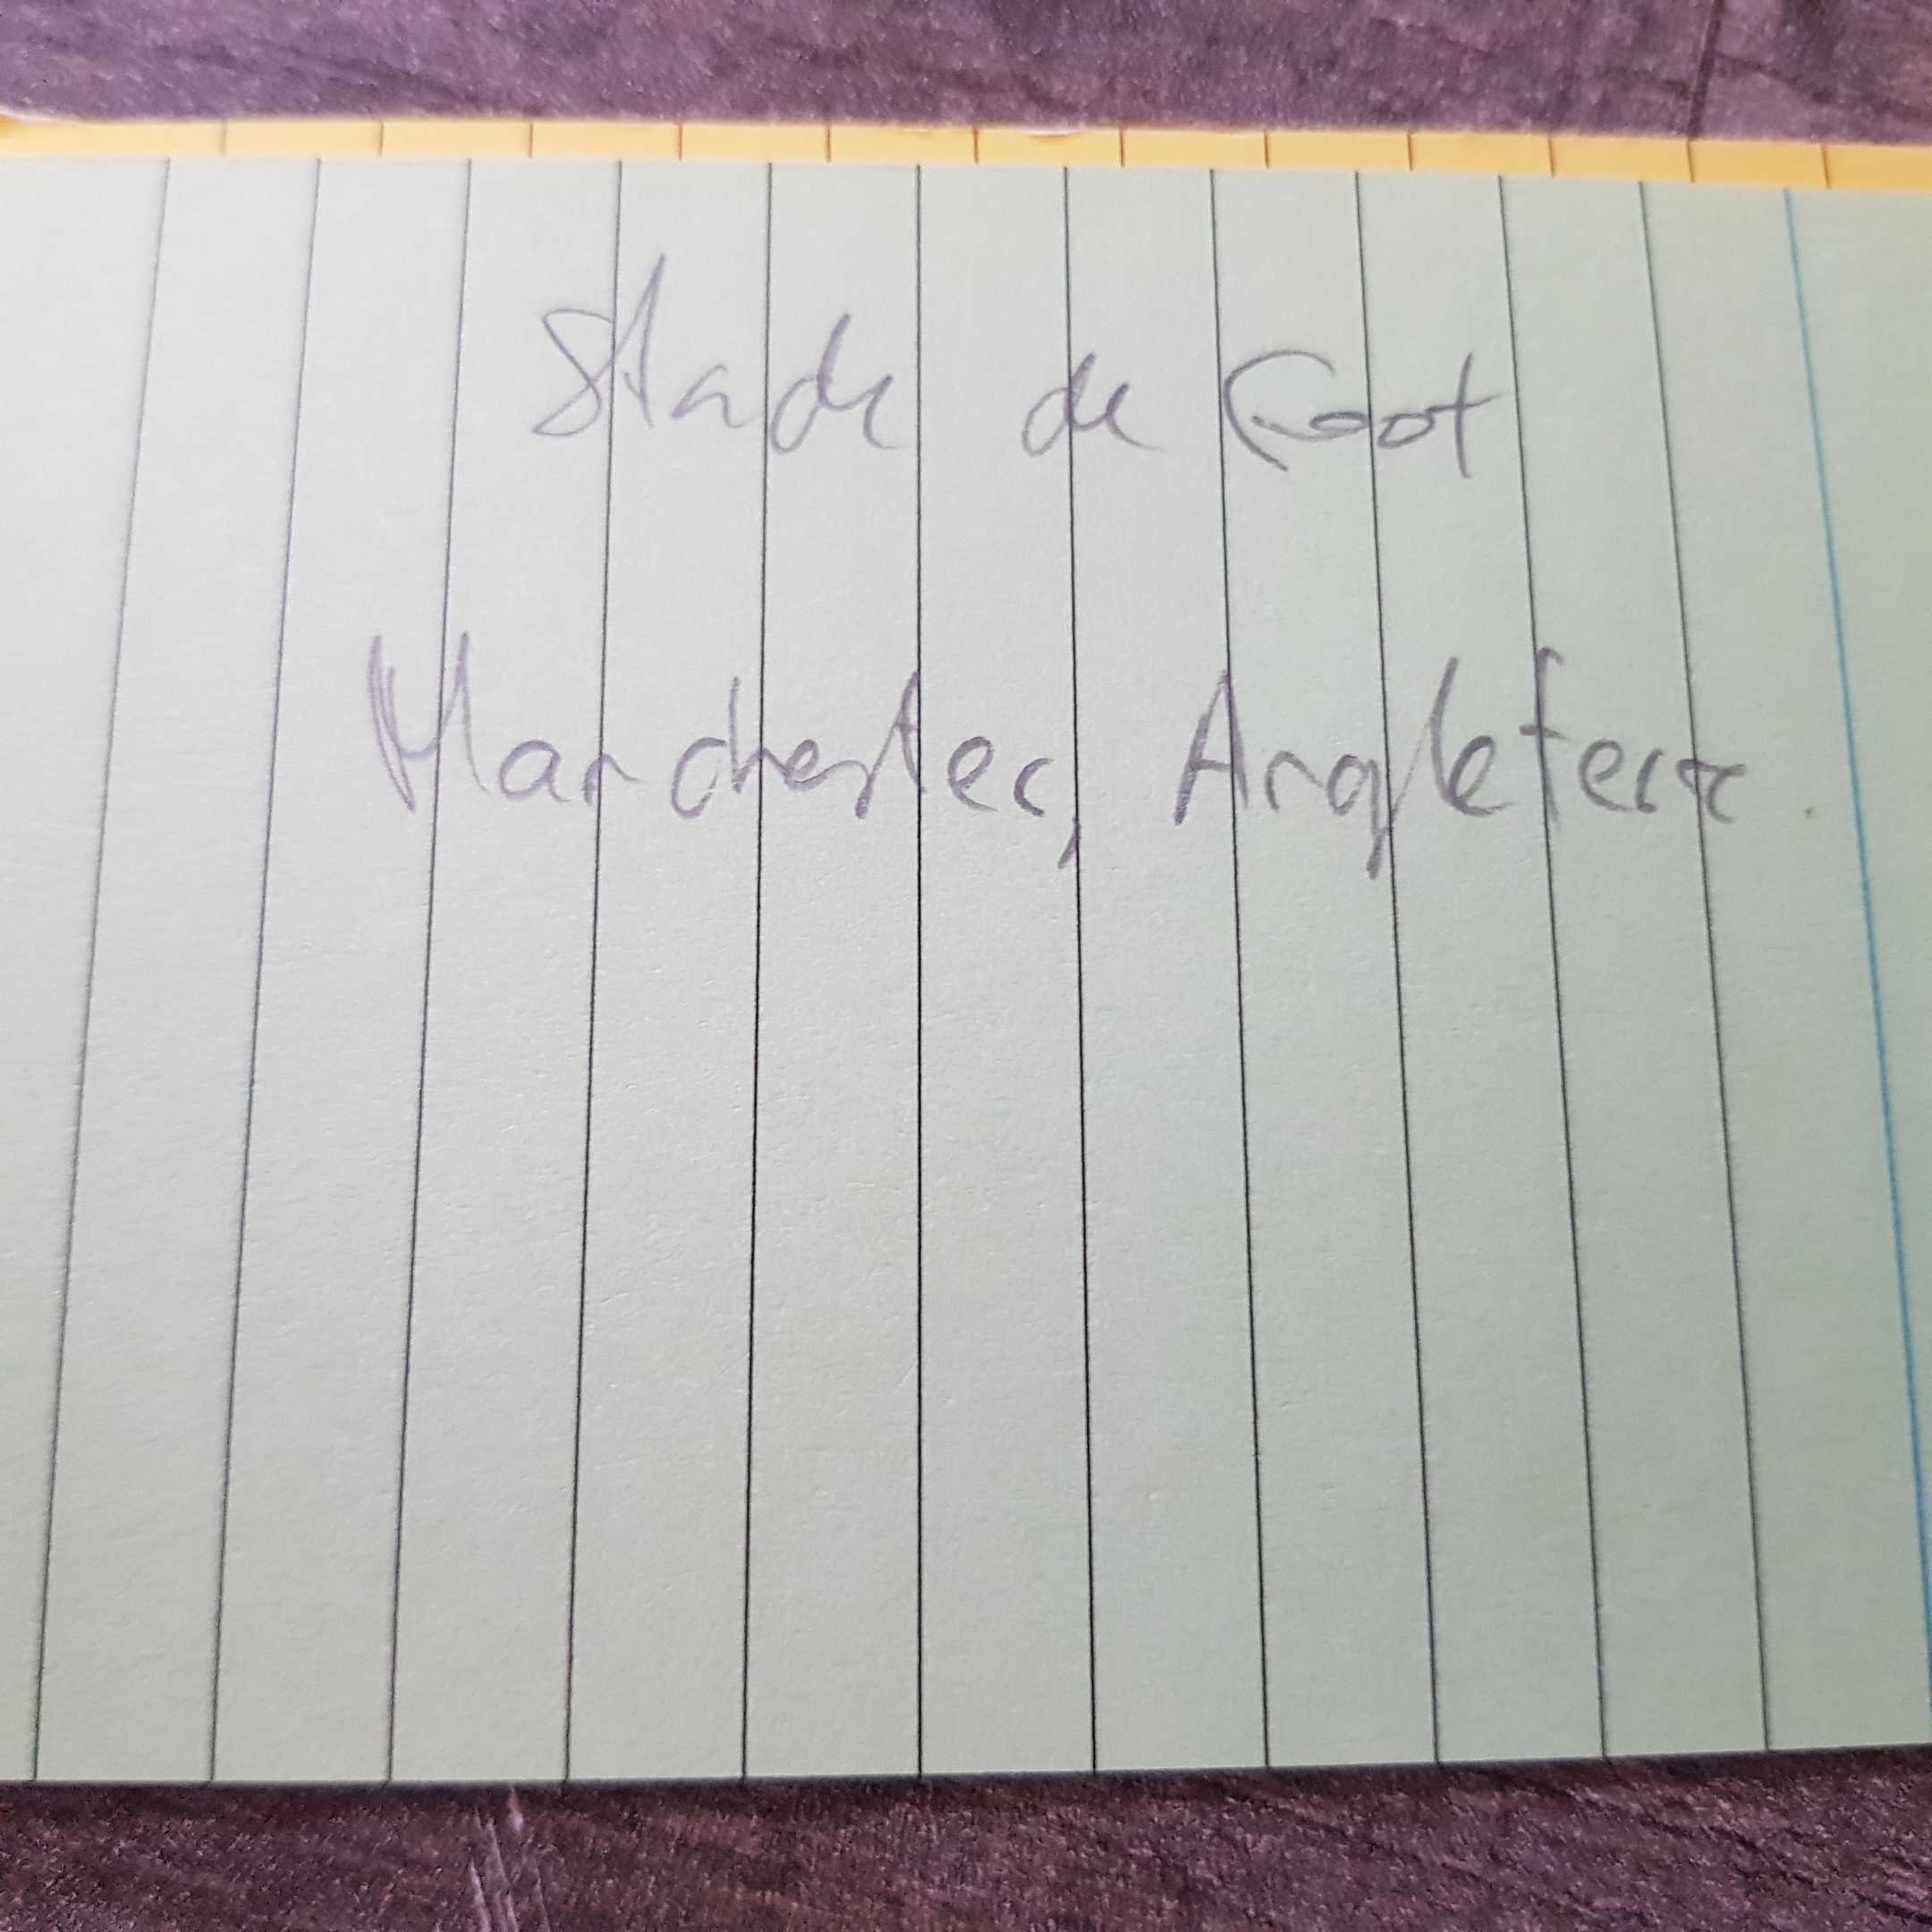 Stade de Foot
Manchester, Angleterre.